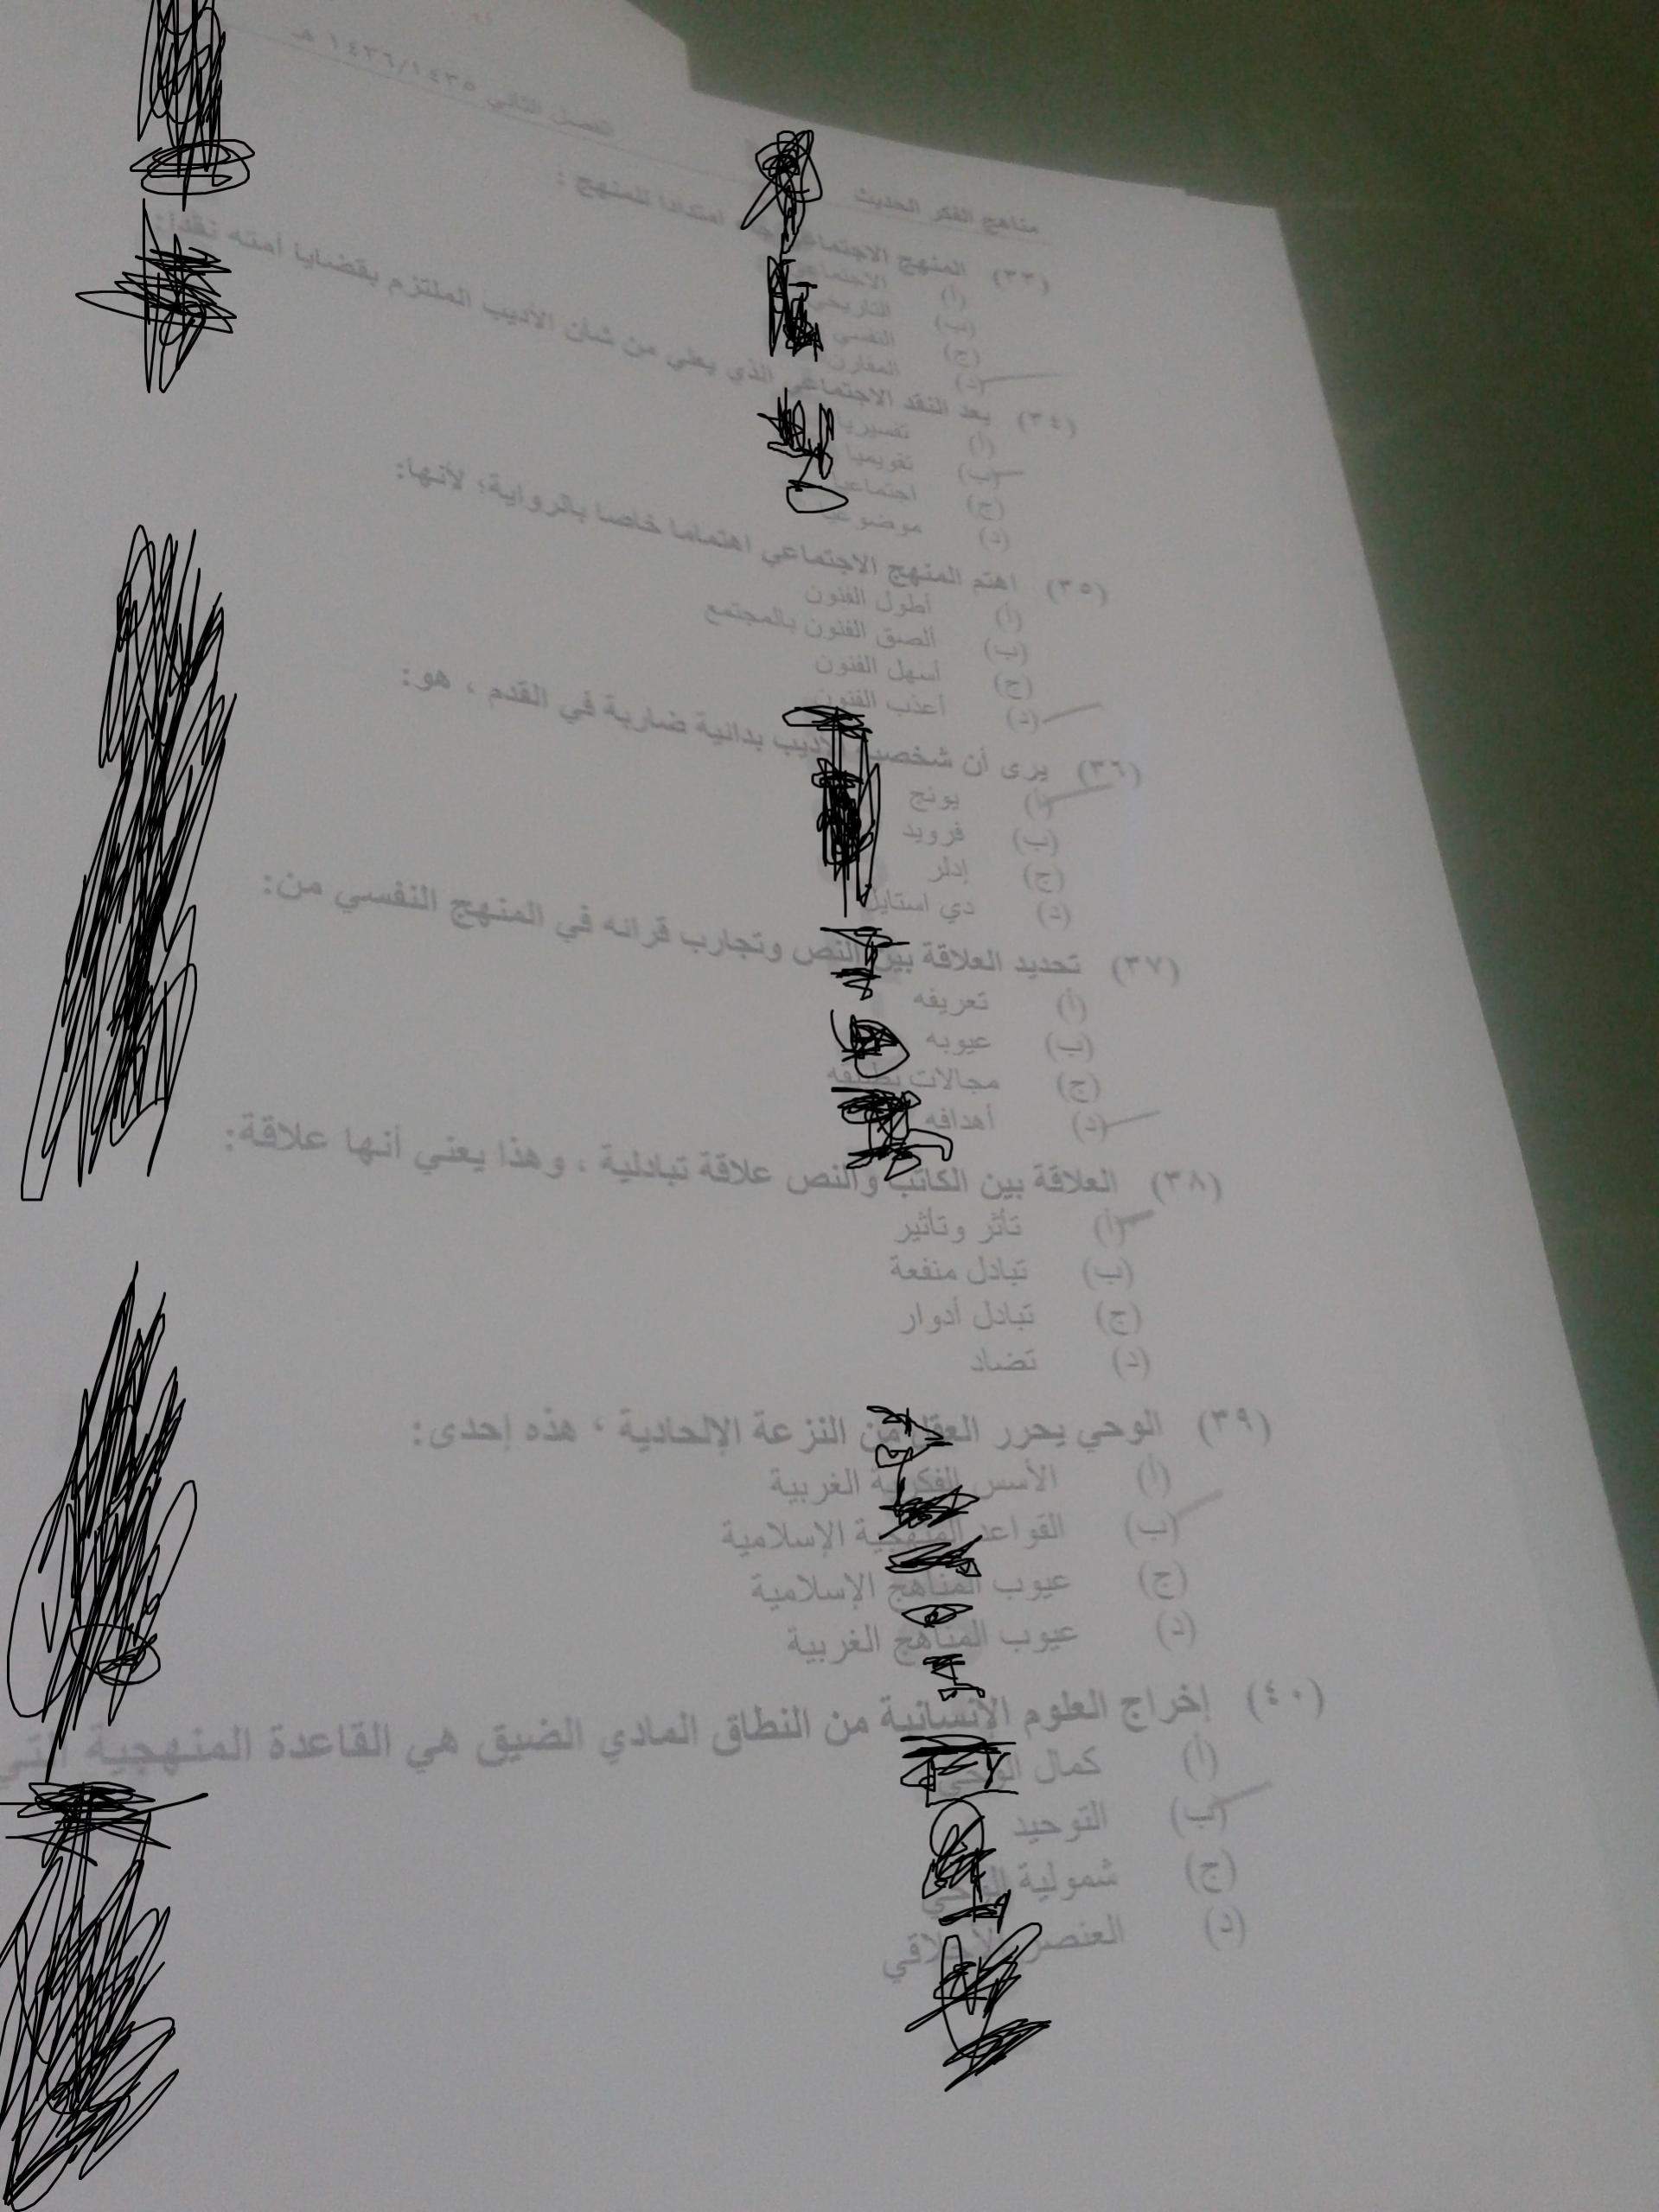 مناهج الفكر الحديث
الفصل الثاني ١٤٣٦/١٤٣٥ هـ
(٣٣) المنهج الاجتماعي امتدادا للمنهج :
(أ) الاجتماعي
(ب) التاريخي
(ج) النفسي
(د) المقارن
(٣٤) يعد النقد الاجتماعي الذي يعلي من شأن الأديب الملتزم بقضايا أمته نقداً:
(أ) تفسيريا
(ب) تقويميا
(ج) اجتماعيا
(د) موضوعيا
(٣٥) اهتم المنهج الاجتماعي اهتماما خاصا بالرواية؛ لأنها:
(أ) أطول الفنون
(ب) ألصق الفنون بالمجتمع
(ج) أسهل الفنون
(د) أعذب الفنون
(٣٦) يرى أن شخصية الأديب بدائية ضاربة في القدم ، هو:
(أ) يونج
(ب) فرويد
(ج) إدلر
(د) دي استايل
(٣٧) تحديد العلاقة بين النص وتجارب قرائه في المنهج النفسي من:
(أ) تعريفه
(ب) عيوبه
(ج) مجالات تطبيقه
(د) أهدافه
(٣٨) العلاقة بين الكاتب والنص علاقة تبادلية ، وهذا يعني أنها علاقة:
(أ) تأثر وتأثير
(ب) تبادل منفعة
(ج) تبادل أدوار
(د) تضاد
(٣٩) الوحي يحرر العقل من النزعة الإلحادية ، هذه إحدى:
(أ) الأسس الفكرية الغربية
(ب) القواعد المنهجية الإسلامية
(ج) عيوب المناهج الإسلامية
(د) عيوب المناهج الغربية
(٤٠) إخراج العلوم الإنسانية من النطاق المادي الضيق هي القاعدة المنهجية التي
(أ) كمال الوحي
(ب) التوحيد
(ج) شمولية الوحي
(د) العنصر الأخلاقي